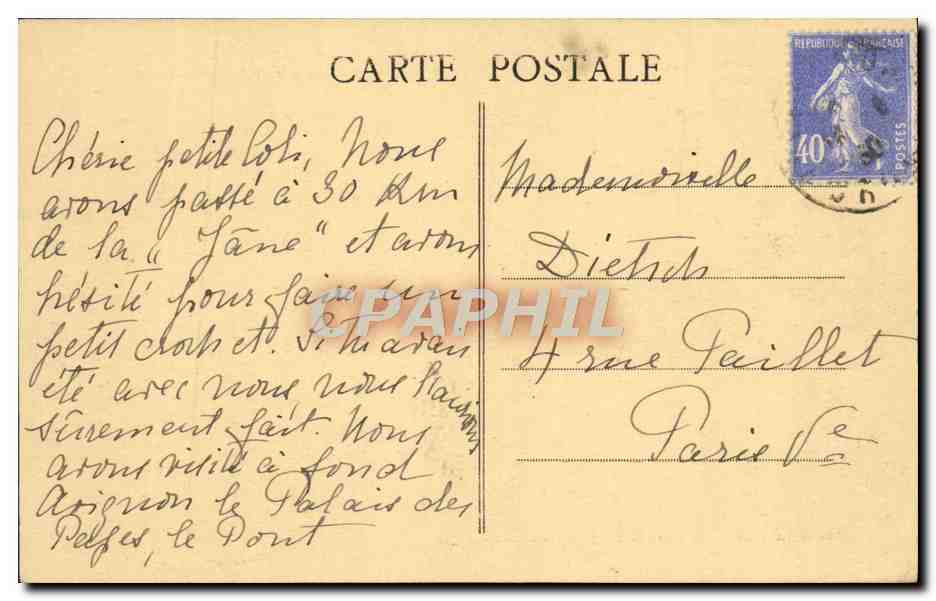 CARTE POSTALE
REPUBLIQUE FRANÇAISE
40
POSTES
Chérie petite Coli, Nous
avons passé à 30 Km
de la „ Jâne" et avons
hésité pour faire un
petit crochet. Si tu avais
été avec nous, nous l'aurions
sûrement fait. Nous
avons visité à fond
Avignon le Palais des
Papes, le Pont
Mademoiselle
Dietsch
4 rue Paillet
Paris Ve
CPAPHIL